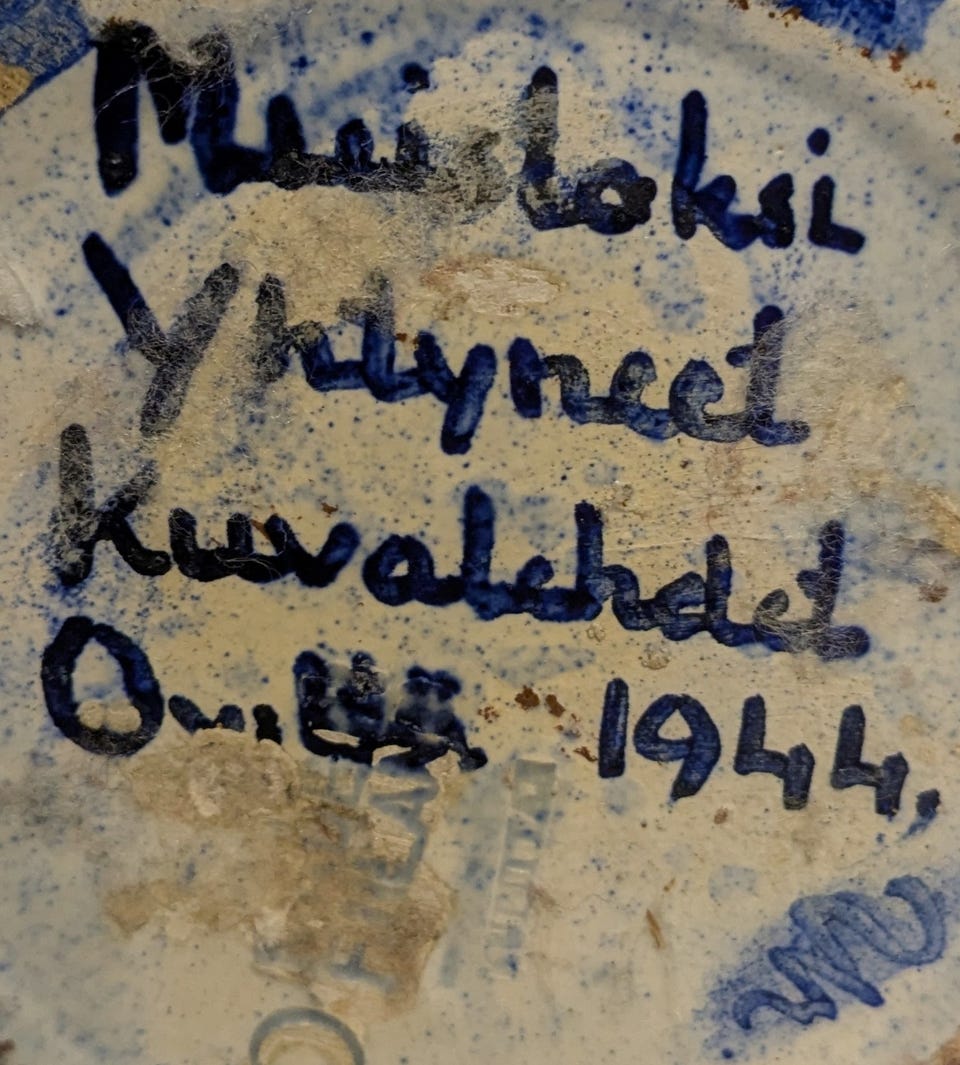 Muistoksi
Yhtyneet
Kuvalehdet
1944,